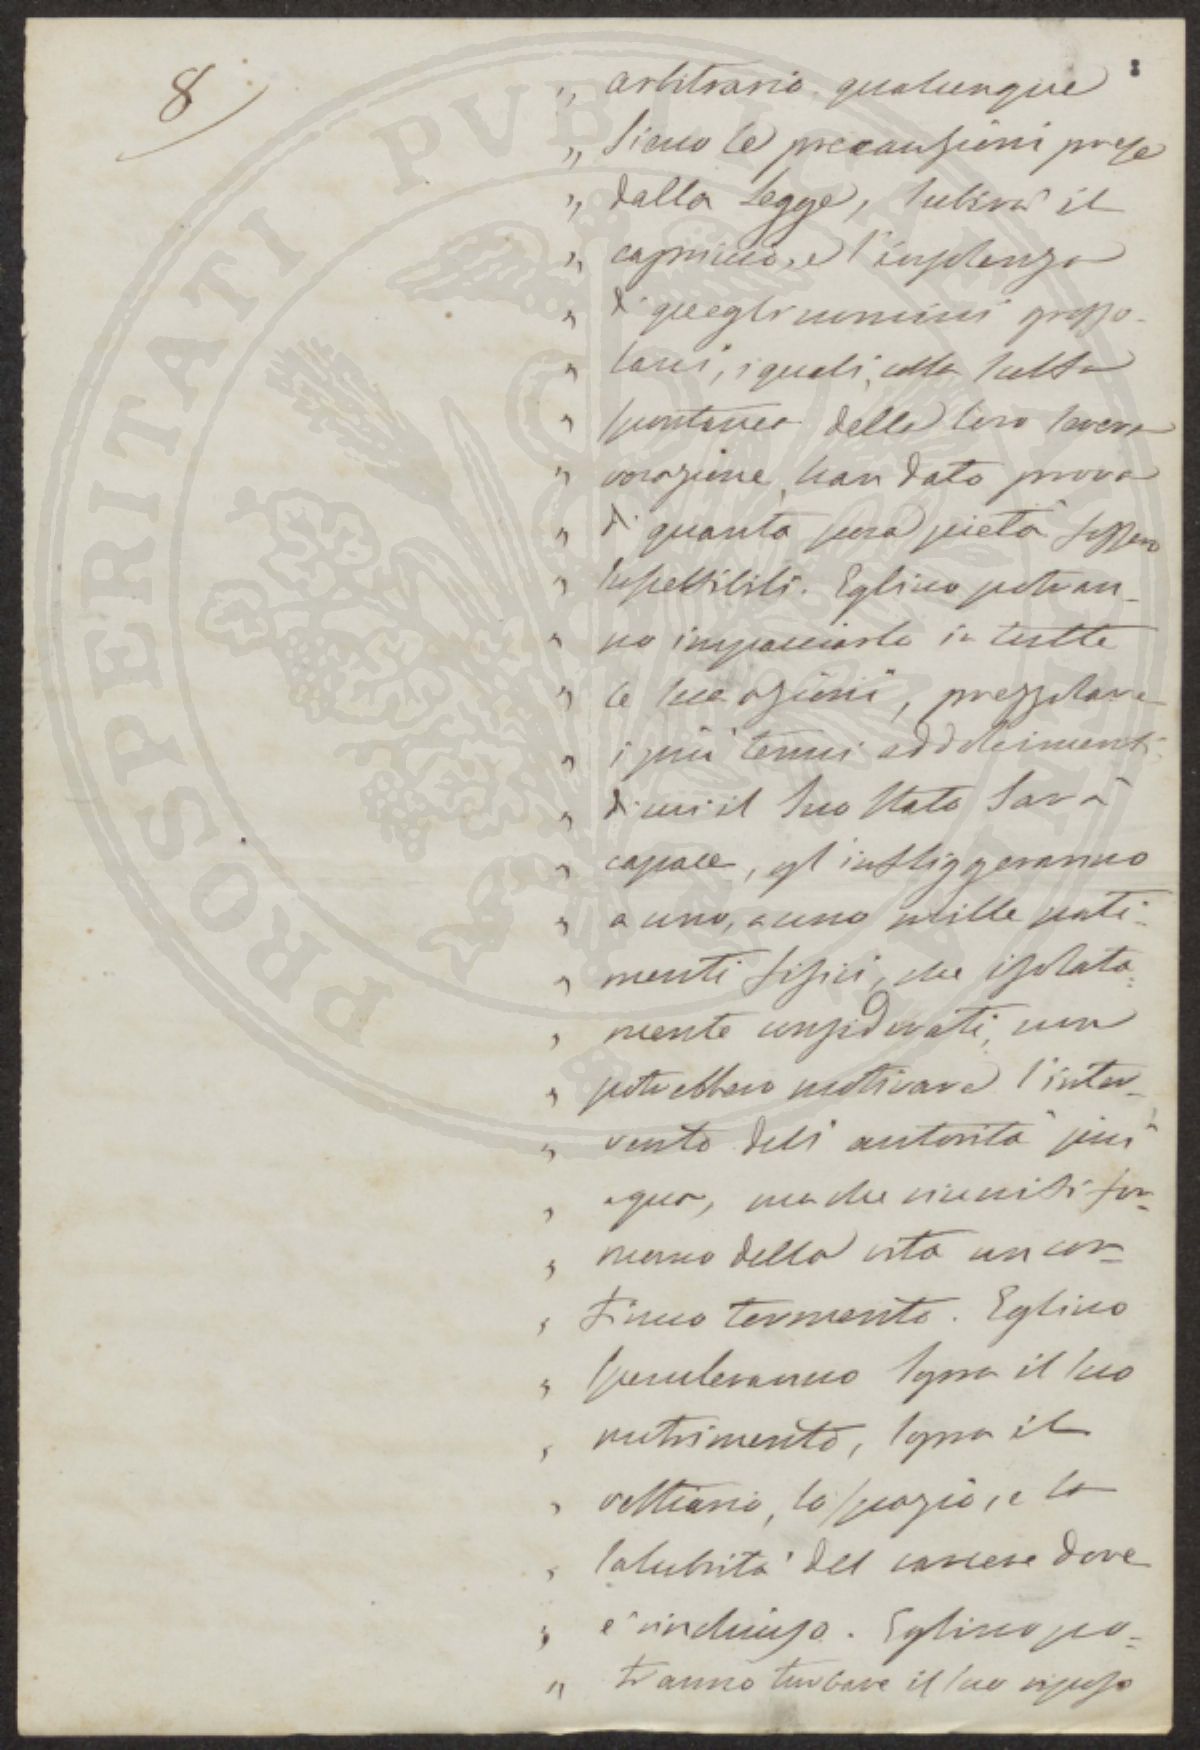 8
„ arbitrario. qualunque
„ sieno le precauzioni prese
„ dalla Legge, subirà il
„ capriccio, e l'insolenza
„ di quegli uomini grosso-
„ lani, i quali, colla scelta
„ spontanea della loro
„ vocazione, han dato prova
„ di quanta poca pietà fossero
„ suscettibili. Eglino potran-
„ no impacciarlo in tutte
„ le sue azioni, prezzolare
„ i più tenui addolcimenti
„ di cui il suo stato sarà
„ capace, gl'infliggeranno
„ a uno, a uno mille pati-
„ menti fisici, che isolata=
„ mente considerati, non
„ potrebbero motivare l'inter-
„ vento dell'autorità più
„ equa, ma che riuniti for-
„ meranno della vita un con-
„ tinuo tormento. Eglino
„ speculeranno sopra il suo
„ nutrimento, sopra il
„ vestiario, lo spazio, e la
„ salubrità del carcere dove
„ è rinchiuso. Eglino po=
„ tranno turbare il suo riposo
PROSPERITATI PVBLICAE